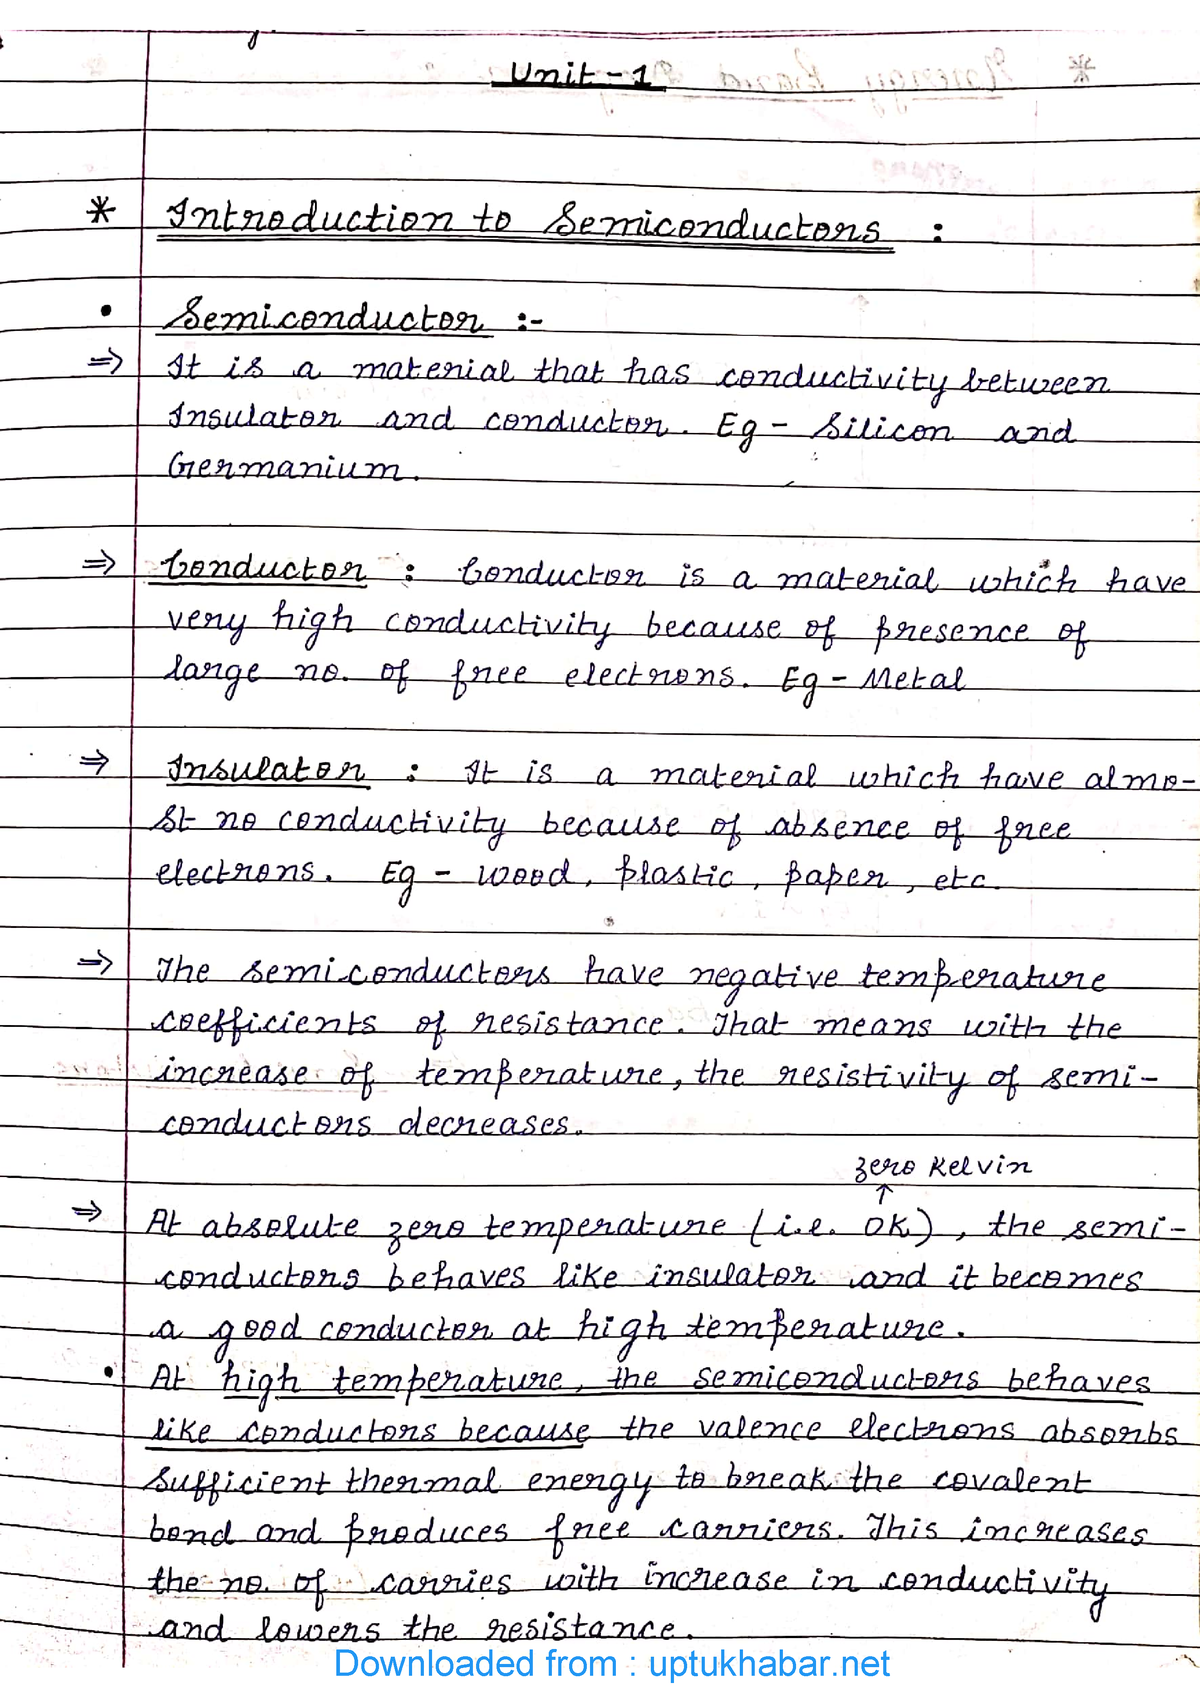 Unit - 1
* Introduction to Semiconductors :
• Semiconductor :-
⇒ It is a material that has conductivity between
Insulator and conductor. Eg - Silicon and
Germanium.
⇒ Conductor : Conductor is a material which have
very high conductivity because of presence of
large no. of free electrons. Eg - Metal
⇒ Insulator : It is a material which have almo-
st no conductivity because of absence of free
electrons. Eg - wood, plastic, paper, etc.
⇒ The semiconductors have negative temperature
coefficients of resistance. That means with the
increase of temperature, the resistivity of semi-
conductors decreases.
zero Kelvin
↑
⇒ At absolute zero temperature (i.e. 0K), the semi-
conductors behaves like insulator and it becomes
a good conductor at high temperature.
• At high temperature, the semiconductors behaves
like conductors because the valence electrons absorbs
sufficient thermal energy to break the covalent
bond and produces free carriers. This increases
the no. of carries with increase in conductivity
and lowers the resistance.
Downloaded from : uptukhabar.net